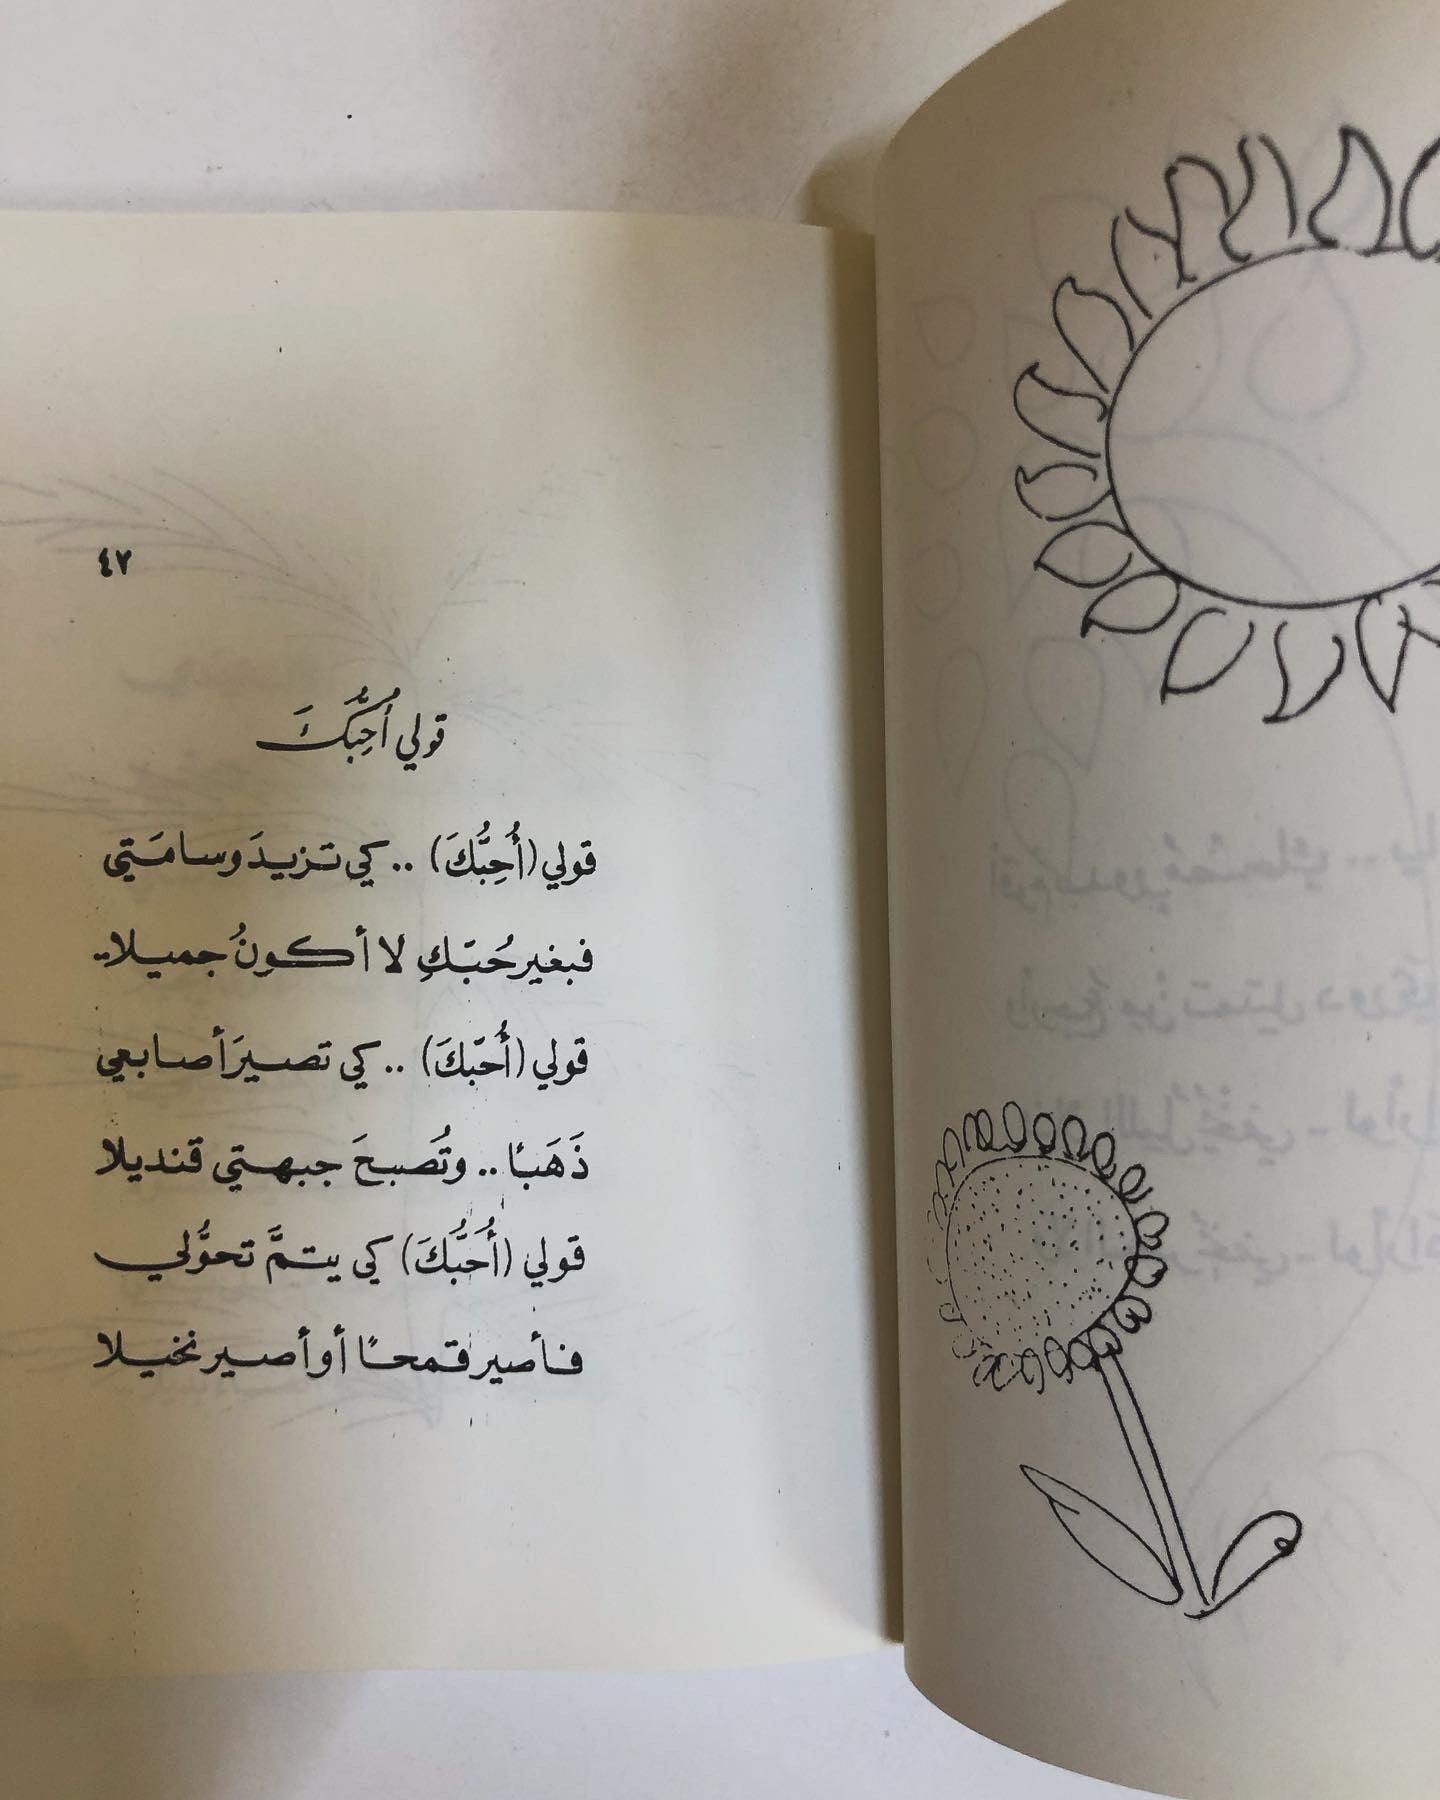 ٤٧
قولي أُحِبُّكَ
قولي (أُحِبُّكَ) .. كي تـزيـدَ وسامَـتي
فبغير حُبّكِ لا أكونُ جميلا..
قولي (أُحّبكَ) .. كي تصيرَ أصابعي
ذَهَبًا .. وتُصَبحَ جبهتي قنديلا
قولي (أُحَبُّكَ) كي يتمَّ تحوُّلي
فأصير قمحًا أو أصير نخيلا